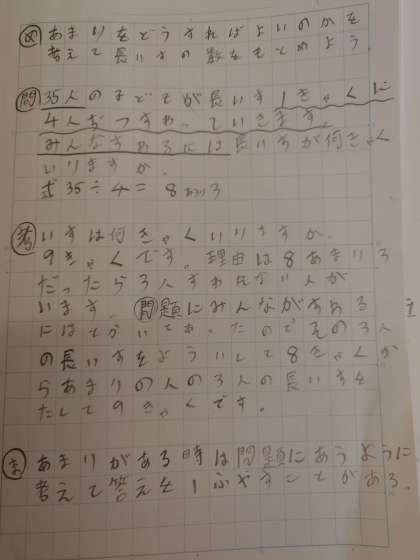 め あまりをどうすればよいのかを
考えて長いすの数をもとめよう。
問 35人の子どもが長いす1きゃくに
4人ずつすわっていきます。
みんなすわるには長いすが何きゃく
いりますか。
式35÷4=8あまり3
考 いすは何きゃくいりますか。
9きゃくです。理由は8あまり3
だったら3人すわれない人が
います。問題にみんながすわる
にはとかいてあったのでその3人
の長いすをよういして8きゃくか
らあまりの人の3人の長いすを
たして9きゃくです。
ま あまりがある時は問題にあうように
考えて答えを1ふやすことがある。